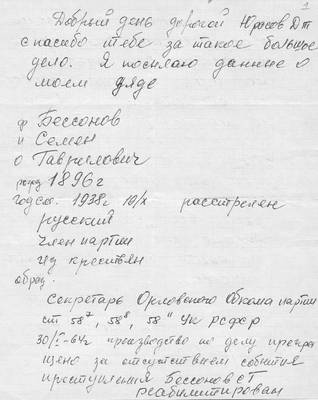 1
Добрый день дорогой Юрасов Дт
спасибо тебе за такое большое
дело. Я посылаю данные о
моем дяде
ф Бессонов
и Семен
о Гаврилович
рожд 1896г
год см. 1938г 10/X расстрелен
русский
член партии
из крестьян
образ.
Секретарь Орловского Обкома партии
ст 58⁷, 58⁸, 58¹¹ Ук РСФСР
30/I-64г производство по делу прекра
щено за отсутствием события
преступления Бессонов СГ
реабилитирован